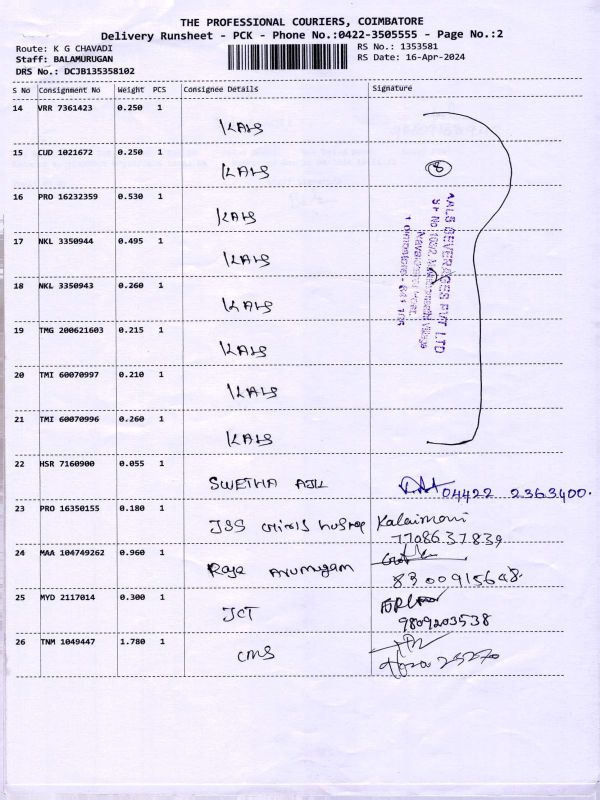 THE PROFESSIONAL COURIERS, COIMBATORE
Delivery Runsheet - PCK - Phone No.:0422-3505555 - Page No.:2
Route: K G CHAVADI
RS No.: 1353581
Staff: BALAMURUGAN
RS Date: 16-Apr-2024
DRS No.: DCJB135358102
S No Consignment No Weight PCS Consignee Details Signature
14 VRR 7361423 0.250 1
KALS
15 CUD 1021672 0.250 1
KALS 8
16 PRO 16232359 0.530 1
KALS
17 NKL 3350944 0.495 1
KALS
18 NKL 3350943 0.260 1
KALS
19 TMG 200621603 0.215 1
KALS
20 TMI 60070997 0.210 1
KALS
21 TMI 60070996 0.260 1
KALS
BEVERAGES PVT LTD
22 HSR 7160900 0.055 1
SWETHA 04422 2363400.
23 PRO 16350155 0.180 1
JSS Kalaimani
7708637839
24 MAA 104749262 0.960 1
Raja Arumugam
8300915648.
25 MYD 2117014 0.300 1
JCT
9809203538
26 TNM 1049447 1.780 1
CMS